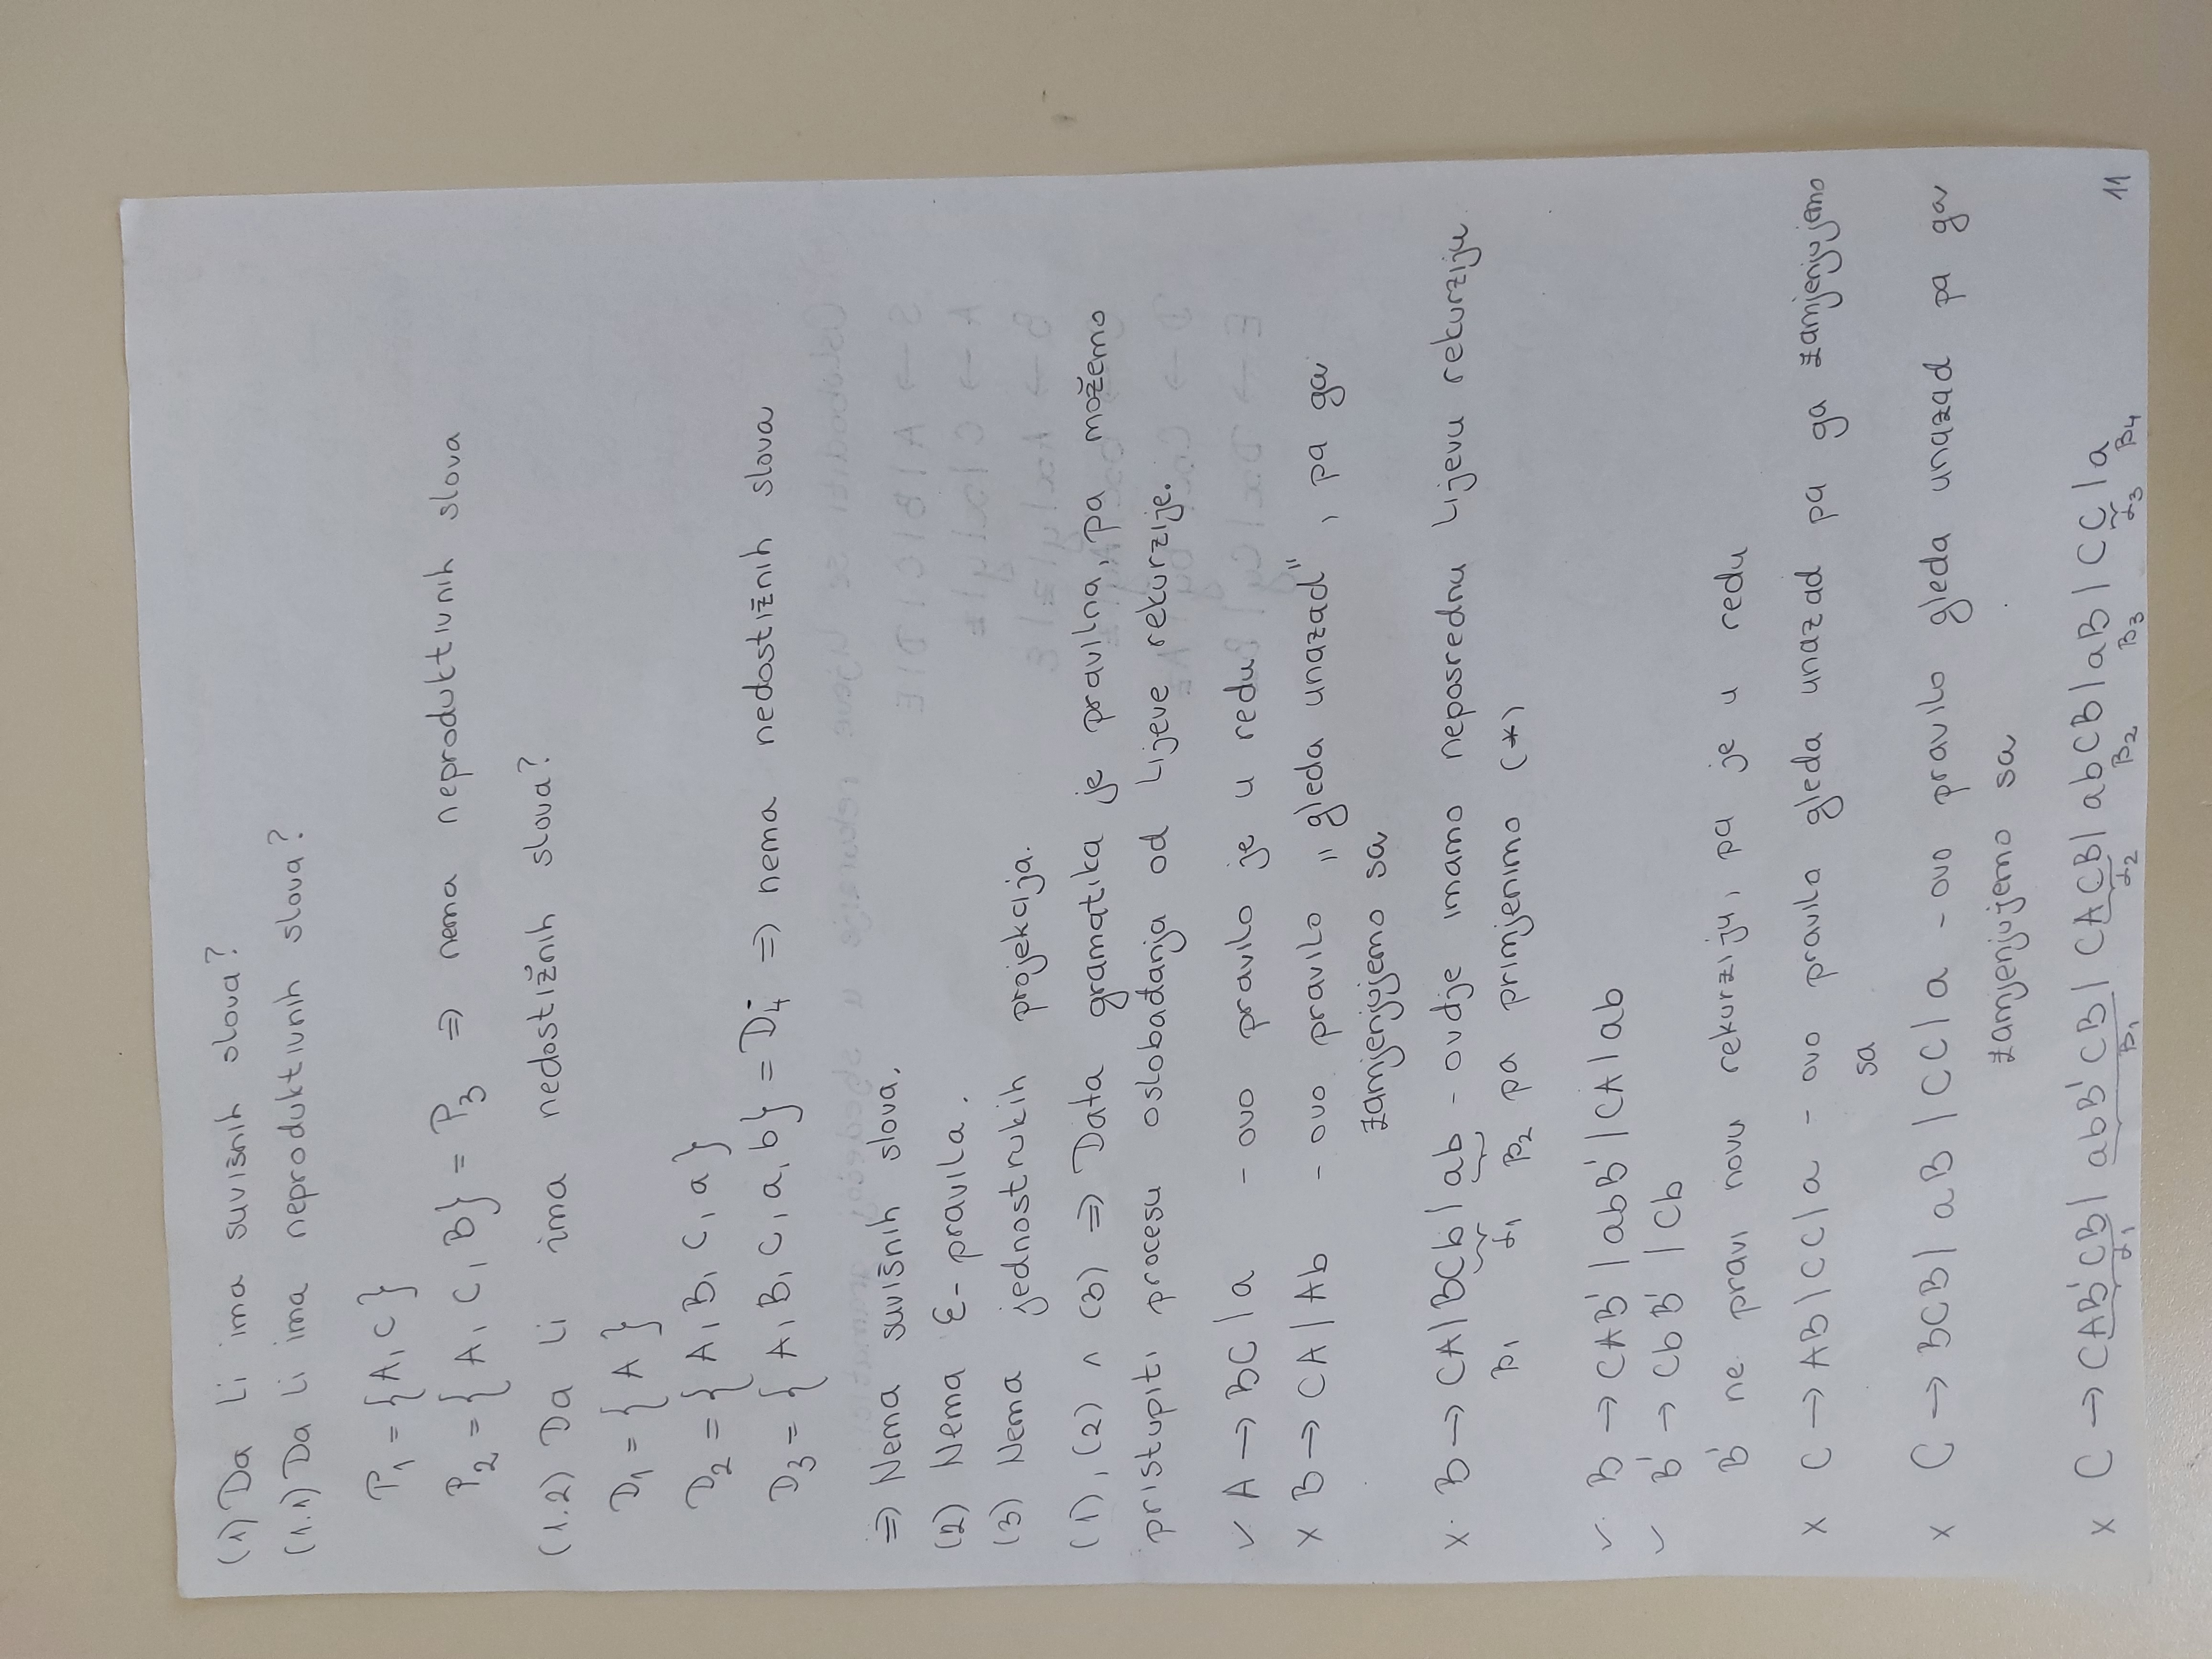 (1) Da li ima suvišnih slova?
(1.1) Da li ima neproduktivnih slova?
P₁ = {A, C}
P₂ = {A, C, B} = P₃ ⇒ nema neproduktivnih slova
(1.2) Da li ima nedostižnih slova?
D₁ = {A}
D₂ = {A, B, C, a}
D₃ = {A, B, C, a, b} = D₄ ⇒ nema nedostižnih slova
⇒ Nema suvišnih slova.
(2) Nema Ɛ-pravila.
(3) Nema jednostrukih projekcija.
(1), (2) ∧ (3) ⇒ Data gramatika je pravilna, pa možemo
pristupiti procesu oslobađanja od lijeve rekurzije.
✓ A → BC | a - ovo pravilo je u redu
x B → CA | Ab - ovo pravilo „gleda unazad", pa ga
zamjenjujemo sa
x B → CA | BCb | ab - ovdje imamo neposrednu lijevu rekurziju
β₁ α₁ β₂ pa primjenimo (*)
✓ B → CAB' | abB' | CA | ab
✓ B' → CbB' | Cb
B' ne pravi novu rekurziju, pa je u redu
x C → AB | CC | a - ovo pravilo gleda unazad pa ga zamjenjujemo
sa
x C → BCB | aB | CC | a - ovo pravilo gleda unazad pa ga
zamjenjujemo sa
x C → CAB'CB | abB'CB | CACB | abCB | aB | CC | a
α₁ β₁ α₂ β₂ β₃ α₃ β₄
11